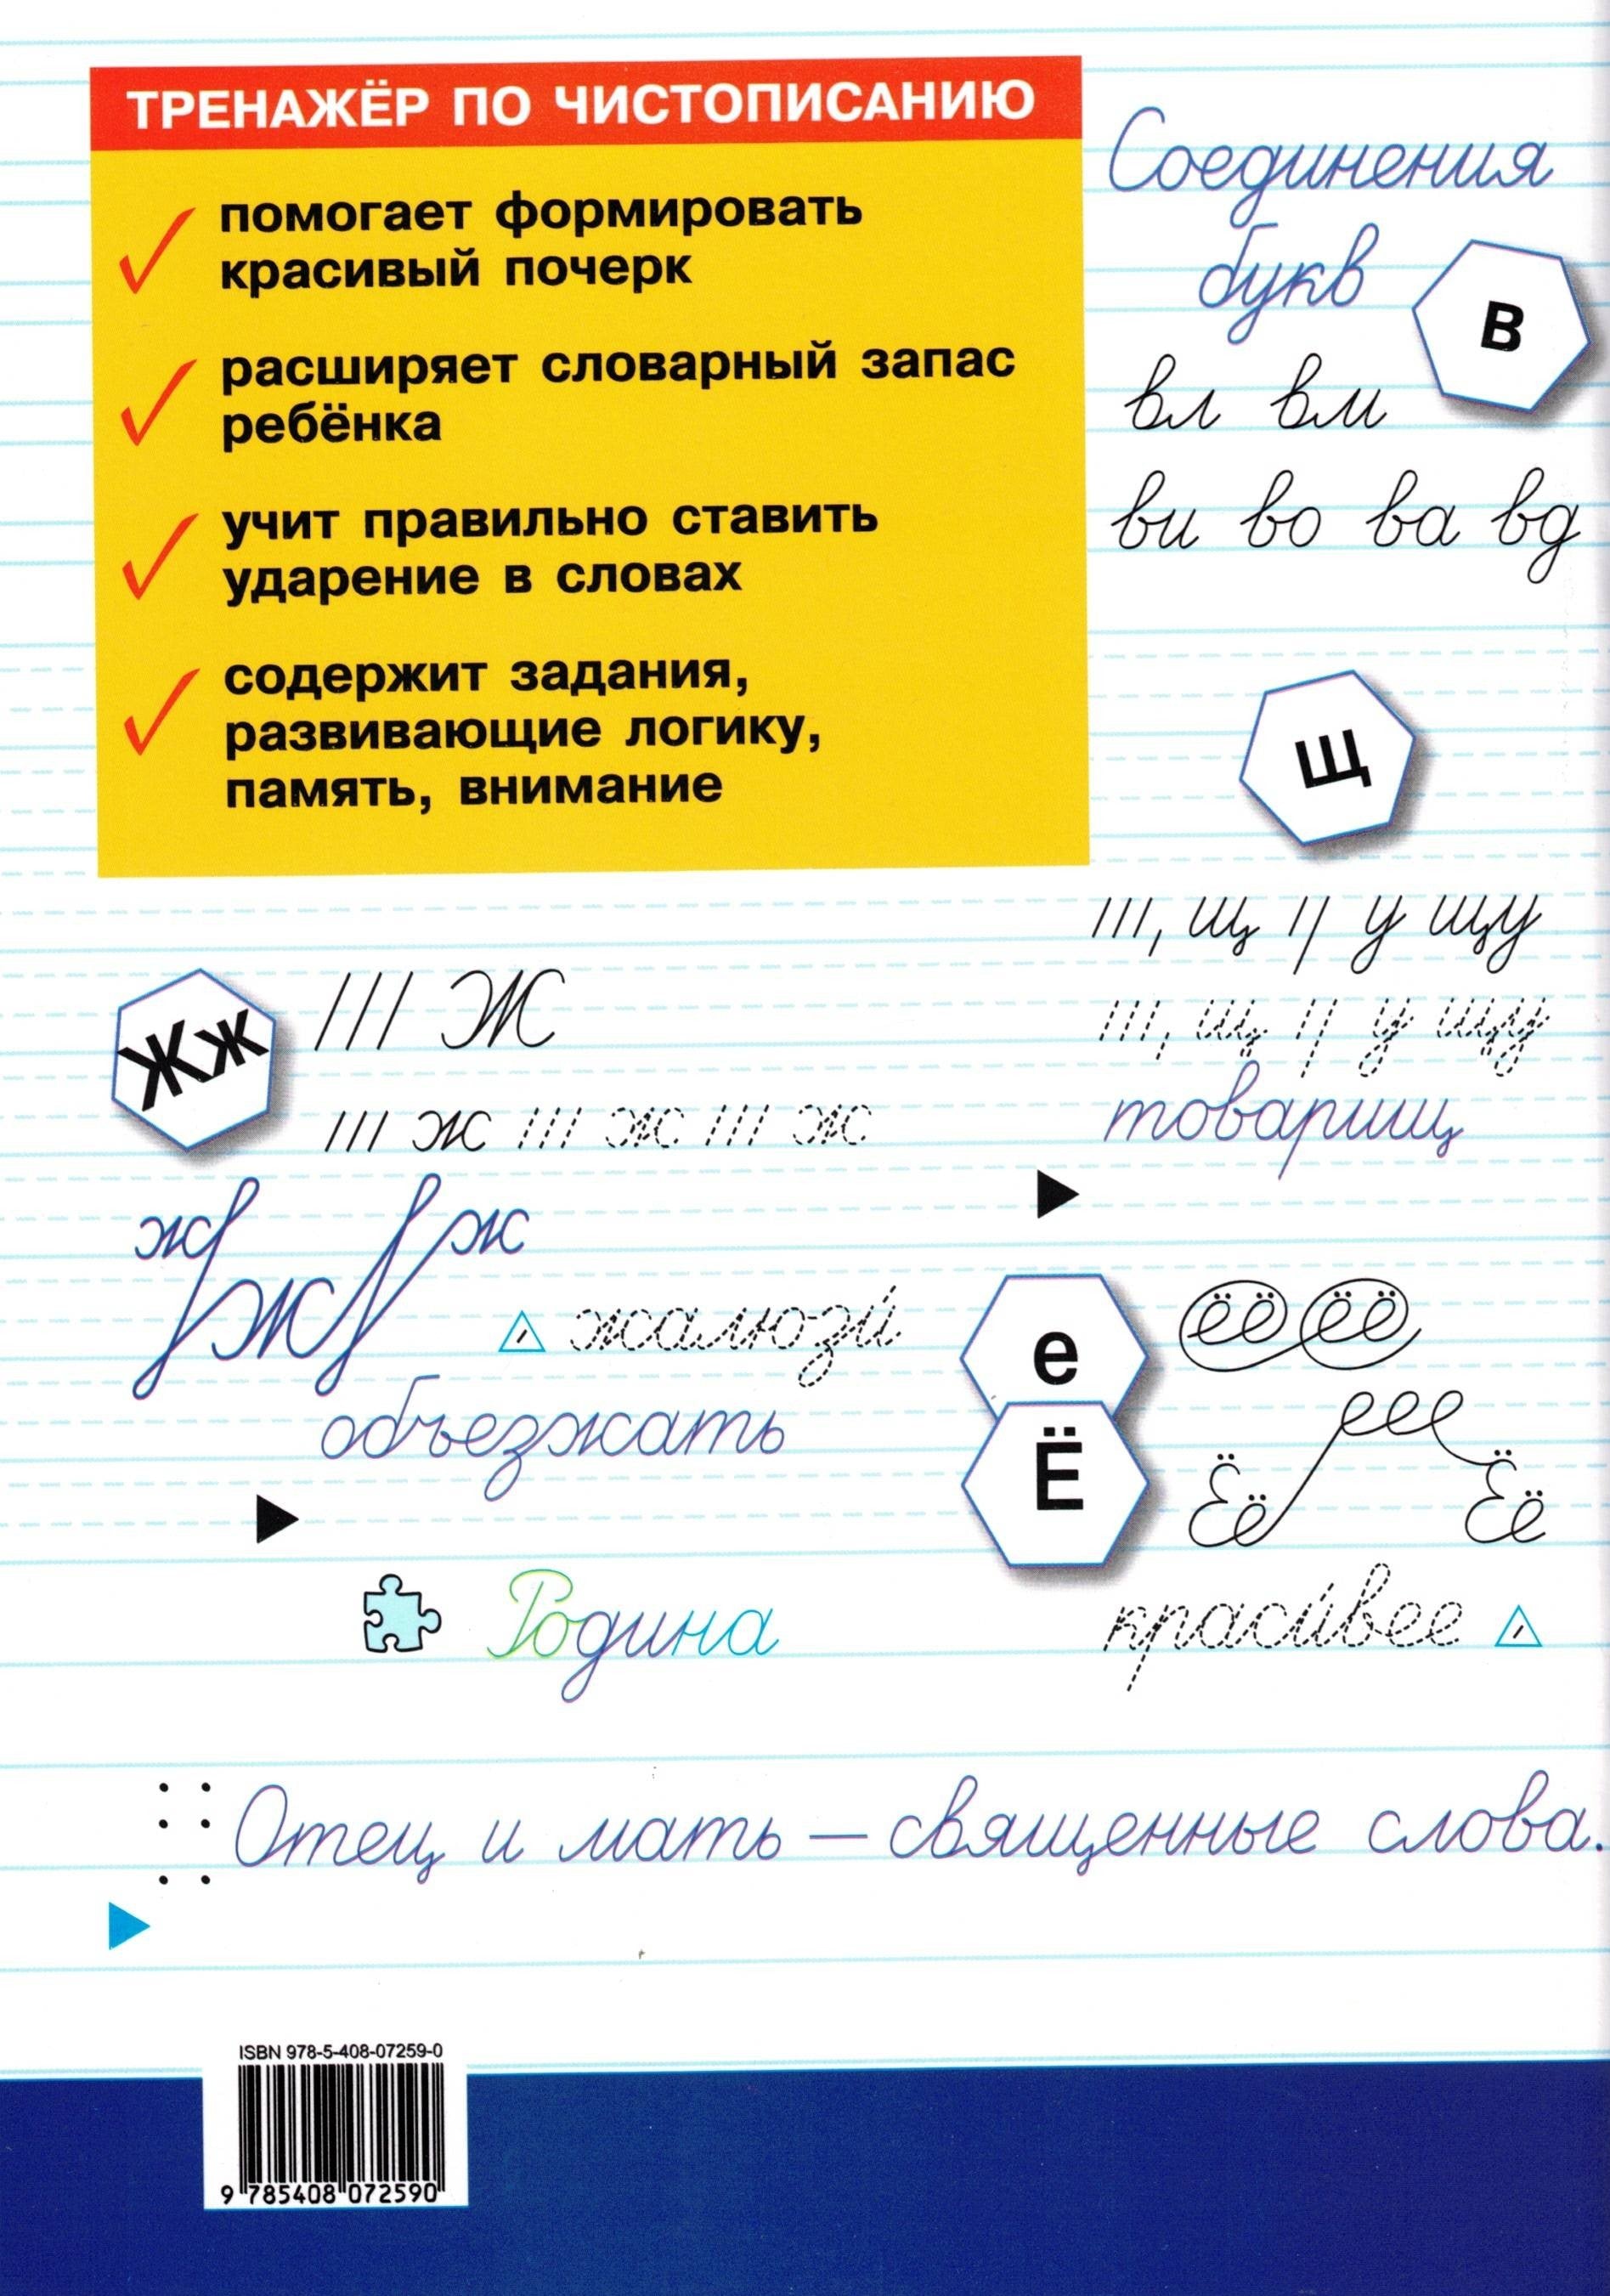 ТРЕНАЖЁР ПО ЧИСТОПИСАНИЮ
помогает формировать
красивый почерк
расширяет словарный запас
ребёнка
учит правильно ставить
ударение в словах
содержит задания,
развивающие логику,
память, внимание
Соединения
букв
в
вл вм
ви во ва вд
щ
щ у щу
щ у щу
товарищ
Жж
Ж
ж ж ж
ж ж ж
жалюзи́
объезжать
Родина
е
Ё
ёё ёё
еее
Ёё Ёё
краси́вее
Отец и мать — священные слова.
ISBN 978-5-408-07259-0
9 785408 072590